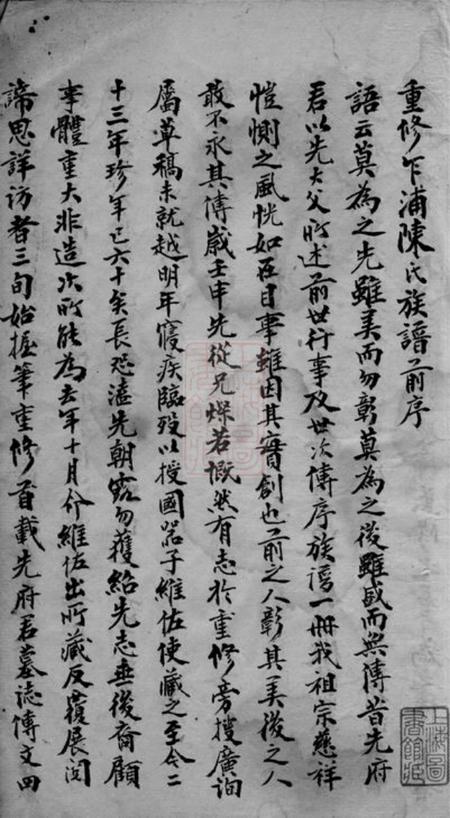 重修乍浦陳氏族譜前序
語云莫為之先雖美而勿彰莫為之後雖盛而無傳昔先府
君以先大父所述前世行事及世次傳序族譜一冊我祖宗慈祥
愷惻之風恍如在目事雖因其實創也前之人彰其美後之人
敢不永其傳歲壬申先從兄燦若慨然有志於重修旁搜廣詢
屬草稿未就越明年寢疾臨歿以授國器子維佐使藏之至今二
十三年珍年已六十矣長恐溘先朝露勿獲紹先志垂後裔顧
事體重大非造次所能為去年十月令維佐出所藏反覆展閱
諦思詳訪者三旬始握筆重修首載先府君墓誌傳文四
上海圖書館藏